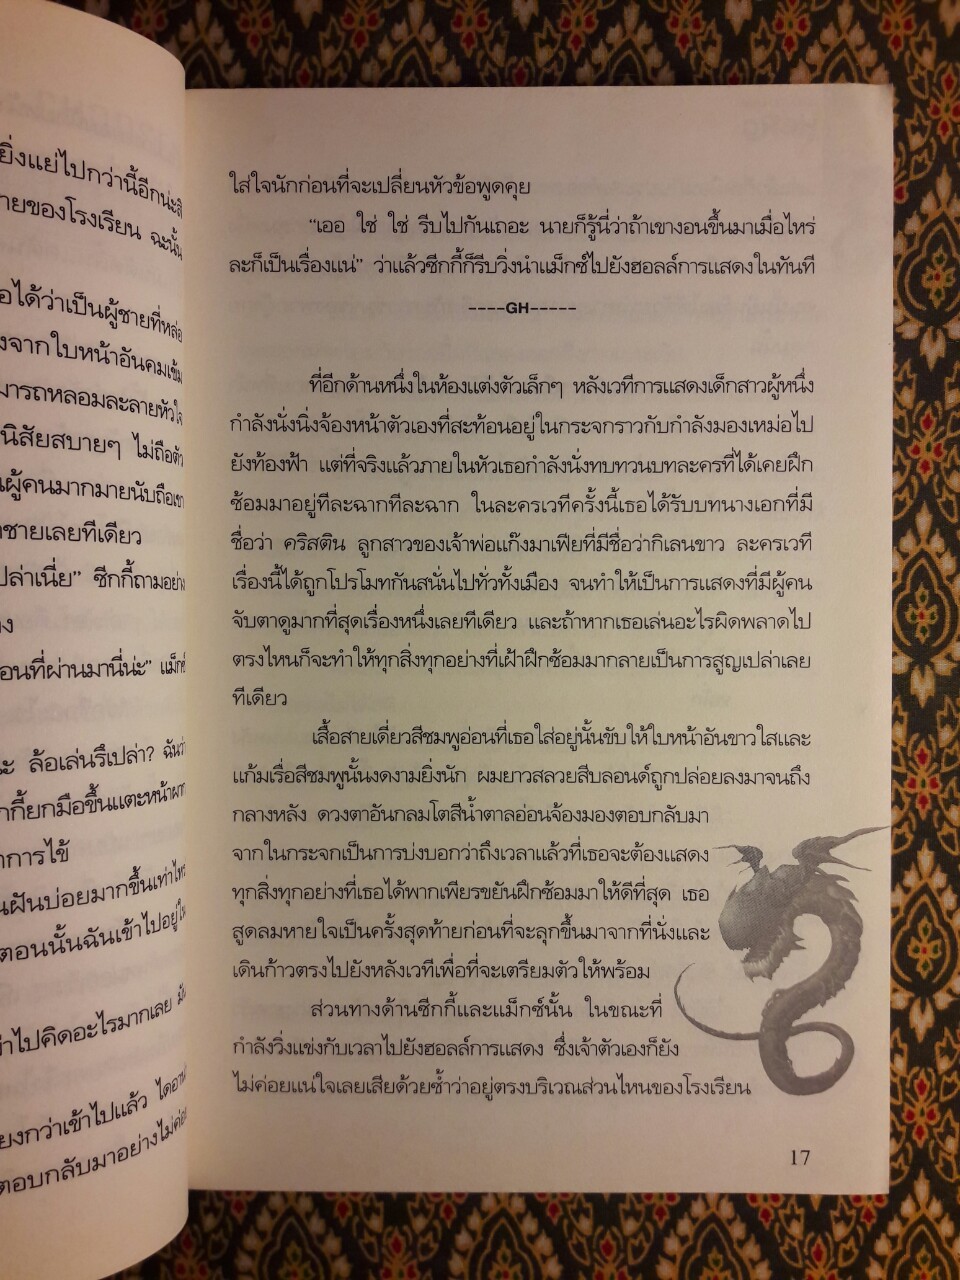 ยิ่งแย่ไปกว่านี้อีกน่ะสิ
ของโรงเรียน ฉะนั้น
ได้ว่าเป็นผู้ชายที่หล่อ
จากใบหน้าอันคมเข้ม
มารถหลอมละลายหัวใจ
นิสัยสบายๆ ไม่ถือตัว
ผู้คนมากมายนับถือเขา
ชายเลยทีเดียว
ปล่าเนี่ย” ซีกกี้ถามอย่าง
อนที่ผ่านมานี่น่ะ” แม็กซ์
ล้อเล่นรึเปล่า? ฉันว่า
กกี้ยกมือขึ้นแตะหน้าผาก
าการไข้
ฝันบ่อยมากขึ้นเท่าไหร่
ตอนนั้นฉันเข้าไปอยู่ใน
ไปคิดอะไรมากเลย มัน
ยงกว่าเข้าไปแล้ว ไดอาน่า
ตอบกลับมาอย่างไม่ค่อย
ใส่ใจนักก่อนที่จะเปลี่ยนหัวข้อพูดคุย
“เออ ใช่ ใช่ รีบไปกันเถอะ นายก็รู้นี่ว่าถ้าเขางอนขึ้นมาเมื่อไหร่
ละก็เป็นเรื่องแน่” ว่าแล้วซีกกี้ก็รีบวิ่งนำแม็กซ์ไปยังฮอลล์การแสดงในทันที
----GH-----
ที่อีกด้านหนึ่งในห้องแต่งตัวเล็กๆ หลังเวทีการแสดงเด็กสาวผู้หนึ่ง
กำลังนั่งนิ่งจ้องหน้าตัวเองที่สะท้อนอยู่ในกระจกราวกับกำลังมองเหม่อไป
ยังท้องฟ้า แต่ที่จริงแล้วภายในหัวเธอกำลังนั่งทบทวนบทละครที่ได้เคยฝึก
ซ้อมมาอยู่ทีละฉากทีละฉาก ในละครเวทีครั้งนี้เธอได้รับบทนางเอกที่มี
ชื่อว่า คริสติน ลูกสาวของเจ้าพ่อแก๊งมาเฟียที่มีชื่อว่ากิเลนขาว ละครเวที
เรื่องนี้ได้ถูกโปรโมทกันสนั่นไปทั่วทั้งเมือง จนทำให้เป็นการแสดงที่มีผู้คน
จับตาดูมากที่สุดเรื่องหนึ่งเลยทีเดียว และถ้าหากเธอเล่นอะไรผิดพลาดไป
ตรงไหนก็จะทำให้ทุกสิ่งทุกอย่างที่เฝ้าฝึกซ้อมมากลายเป็นการสูญเปล่าเลย
ทีเดียว
เสื้อสายเดี่ยวสีชมพูอ่อนที่เธอใส่อยู่นั้นขับให้ใบหน้าอันขาวใสและ
แก้มเรื่อสีชมพูนั้นงดงามยิ่งนัก ผมยาวสลวยสีบลอนด์ถูกปล่อยลงมาจนถึง
กลางหลัง ดวงตาอันกลมโตสีน้ำตาลอ่อนจ้องมองตอบกลับมา
จากในกระจกเป็นการบ่งบอกว่าถึงเวลาแล้วที่เธอจะต้องแสดง
ทุกสิ่งทุกอย่างที่เธอได้พากเพียรขยันฝึกซ้อมมาให้ดีที่สุด เธอ
สูดลมหายใจเป็นครั้งสุดท้ายก่อนที่จะลุกขึ้นมาจากที่นั่งและ
เดินก้าวตรงไปยังหลังเวทีเพื่อที่จะเตรียมตัวให้พร้อม
ส่วนทางด้านซีกกี้และแม็กซ์นั้น ในขณะที่
กำลังวิ่งแข่งกับเวลาไปยังฮอลล์การแสดง ซึ่งเจ้าตัวเองก็ยัง
ไม่ค่อยแน่ใจเลยเสียด้วยซ้ำว่าอยู่ตรงบริเวณส่วนไหนของโรงเรียน
17